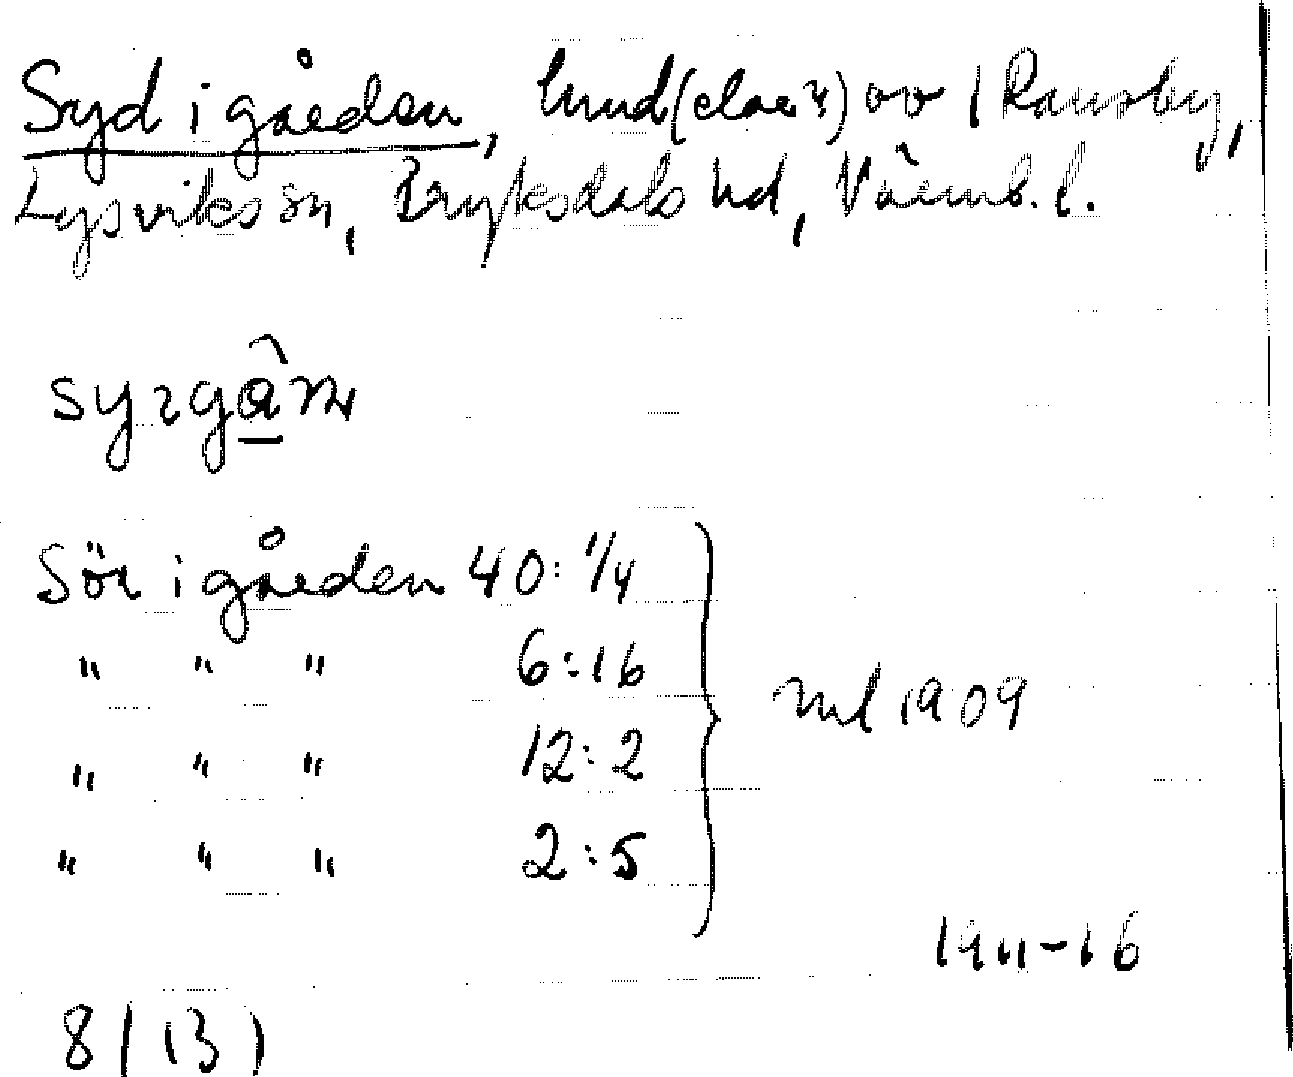 Syd i gården, hmd (elae 4) av 1 Ransby,
Lysviks sn, Fryksdals hd, Värml. l.
syrgân
Sör i gården 40:1/4
" " " 6:16
" " " 12:2
" " " 2:5
ml 1909
1911-16
8 (13)